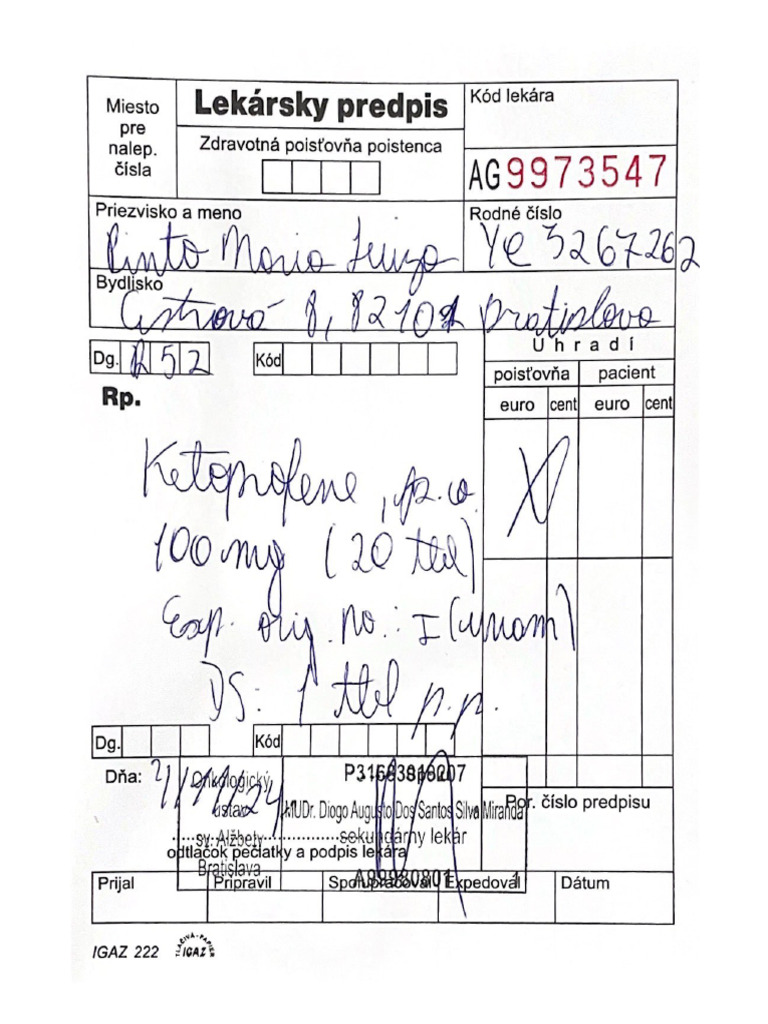 Miesto
pre
nalep.
čísla
Lekársky predpis
Zdravotná poisťovňa poistenca
Kód lekára
AG 9973547
Priezvisko a meno
Pinto Maria Luiza
Rodné číslo
YC3267262
Bydlisko
8, 82101 Bratislava
Dg. R52
Kód
Uhradí
poisťovňa pacient
euro cent euro cent
Rp.
Ketoprofene, p.o.
100 mg (20 tbl)
Exp. orig. No.: I (unam)
DS: 1 tbl p.p.
Dg.
Kód
Dňa: 4/11/24
Onkologický
ústav
sv. Alžbety
Bratislava
MUDr. Diogo Augusto Dos Santos Silva Miranda
sekundárny lekár
A99980801 1
odtlačok pečiatky a podpis lekára
Por. číslo predpisu
Prijal
Pripravil
Spolupracoval
Expedoval
Dátum
IGAZ 222
TLAČIVÁ-PAPIER
IGAZ